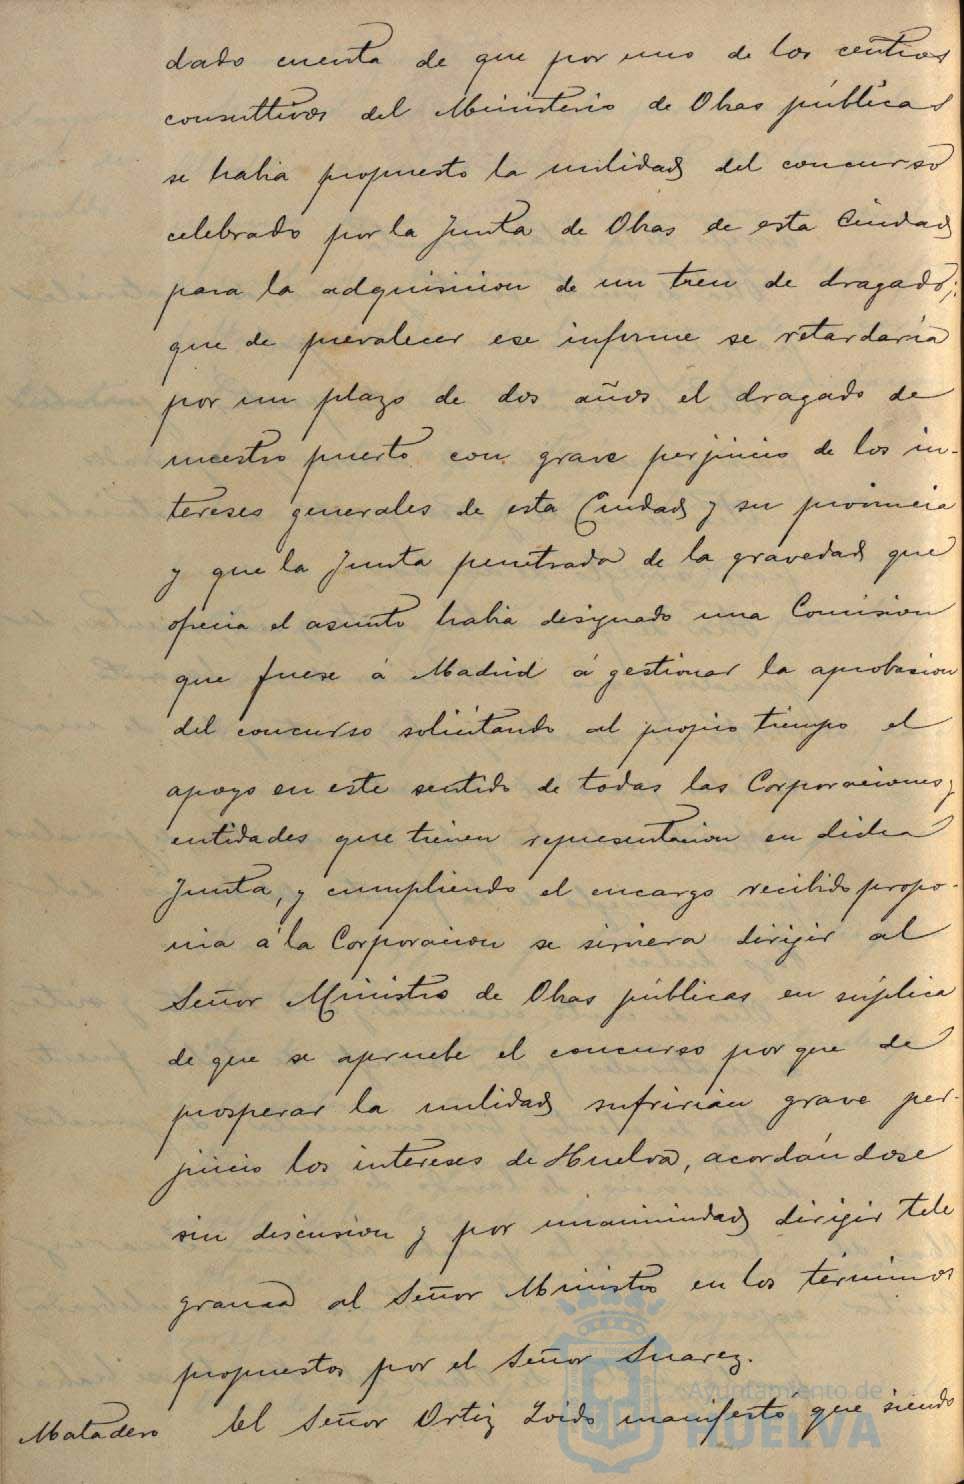 dado cuenta de que por uno de los centros
consultivos del Ministerio de Obras públicas
se habia propuesto la nulidad del concurso
celebrado por la Junta de Obras de esta Ciudad
para la adquisicion de un tren de dragado;
que de prevalecer ese informe se retardaria
por un plazo de dos años el dragado de
nuestro puerto con grave perjuicio de los in-
tereses generales de esta Ciudad y su provincia
y que la Junta penetrada de la gravedad que
ofrecia el asunto habia designado una Comision
que fuese á Madrid á gestionar la aprobasion
del concurso solicitando al propio tiempo el
apoyo en este sentido de todas las Corporaciones y
entidades que tienen representacion en dicha
Junta, y cumpliendo el encargo recibido propo-
nia á la Corporacion se sirviera dirigir al
Señor Ministro de Obras públicas en súplica
de que se apruebe el concurso por que de
prosperar la nulidad sufririan grave per-
juicio los intereses de Huelva, acordándose
sin discusion y por unanimidad dirigir tele
grama al Señor Ministro en los términos
propuestos por el Señor Suarez.
Matadero El Señor Ortiz Toido manifestó que siendo
Ayuntamiento de
HUELVA